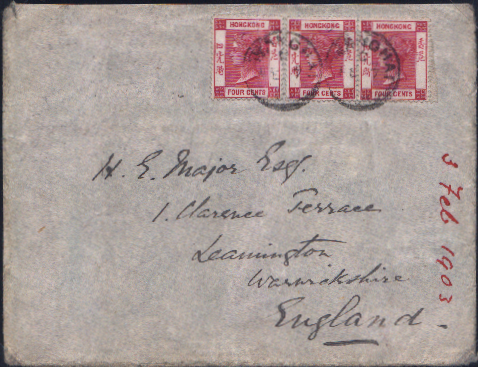 HONGKONG HONGKONG HONGKONG
FOUR CENTS FOUR CENTS FOUR CENTS
H. E. Major Esq.
1. Clarence Terrace
Leamington
Warwickshire
England
3 Feb 1903